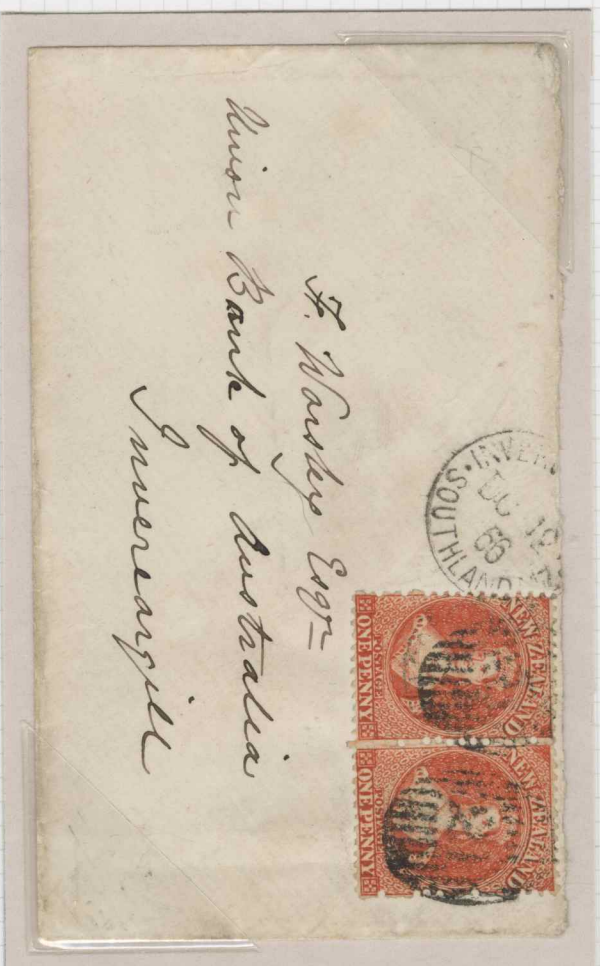 H. Worsley Esqre
Union Bank of Australia
Invercargill
INVER
DC 12
66
SOUTHLAND
NEW ZEALAND
POSTAGE
ONE PENNY
NEW ZEALAND
POSTAGE
ONE PENNY